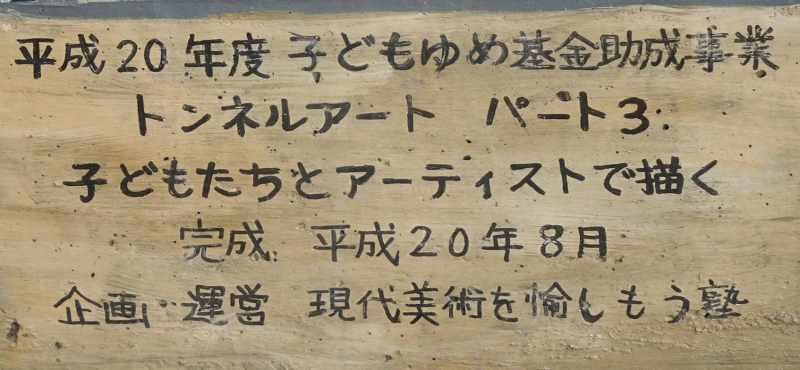 平成20年度 子どもゆめ基金助成事業
トンネルアート パート3
子どもたちとアーティストで描く
完成 平成20年8月
企画・運営 現代美術を愉しもう塾